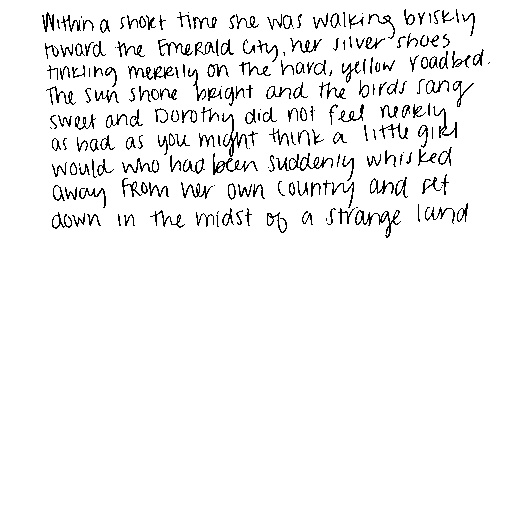 Within a short time she was walking briskly
toward the Emerald City, her silver shoes
tinkling merrily on the hard, yellow roadbed.
The sun shone bright and the birds sang
sweet and Dorothy did not feel nearly
as bad as you might think a little girl
would who had been suddenly whisked
away from her own country and set
down in the midst of a strange land